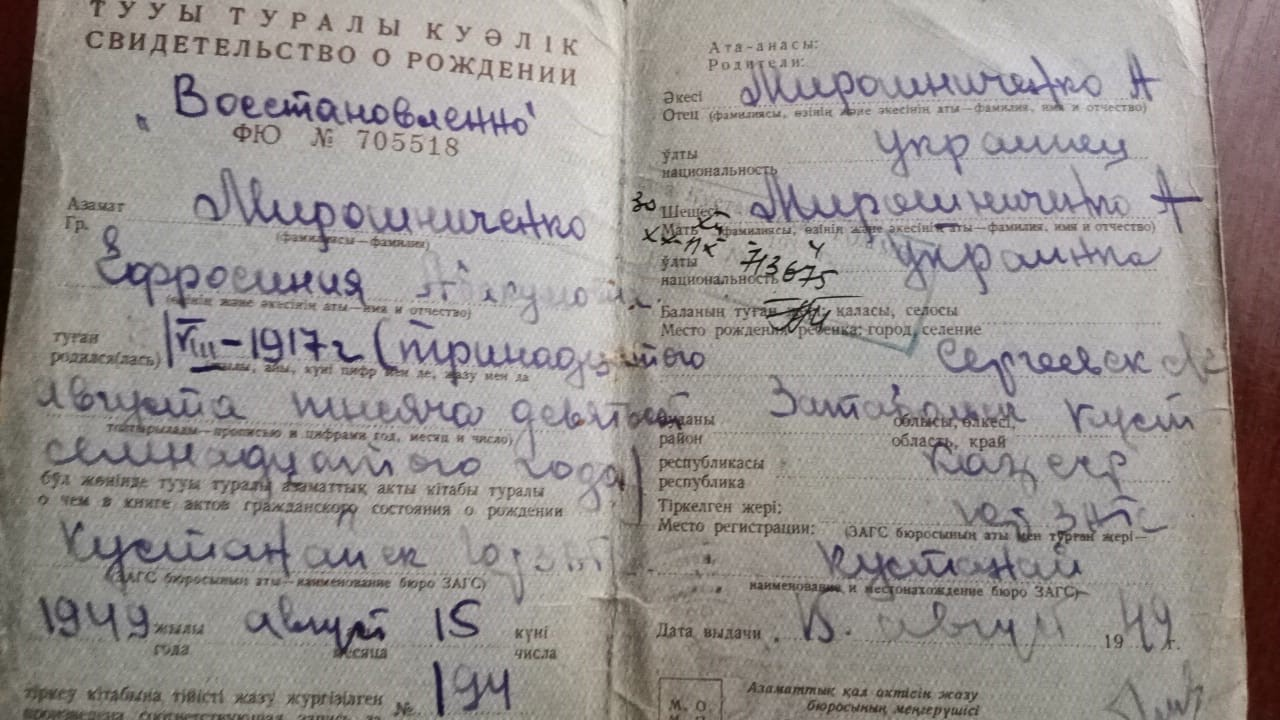 ТУУЫ ТУРАЛЫ КУӘЛІК
СВИДЕТЕЛЬСТВО О РОЖДЕНИИ
„Восстановленно"
ФЮ № 705518
Азамат
Гр. Мирошниченко
(фамилиясы—фамилия)
Ефросиния
(өзінің және әкесінің аты—имя и отчество)
туған
родился(лась) VIII-1917г (тринадцатого
жылы, айы, күні цифр мен де, жазу мен да
августа тысяча девятьсот
толтырылады—прописью и цифрами год, месяц и число)
семнадцатого года)
бұл жөнінде тууы туралы азаматтық акты кітабы туралы
о чем в книге актов гражданского состояния о рождении
Кустанайск
(ЗАГС бюросының аты—наименование бюро ЗАГС)
1949 жылы август 15 күні
года месяца числа
тіркеу кітабына тійісті жазу жүргізілген
№ 194
произведена соответствующая запись за
Ата-анасы:
Родители:
Әкесі Мирошниченко А
Отец (фамилиясы, өзінің және әкесінің аты—фамилия, имя и отчество)
ұлты украинец
национальность
30 Шешесі Мирошниченко А
Мать (фамилиясы, өзінің және әкесінің аты—фамилия, имя и отчество)
ұлты украинка
национальность 713675
Баланың туған қаласы, селосы
Место рождения ребенка: город, селение
Сергеевск
ауданы облысы, өлкесі, Куст
район область, край
республикасы Каз сср
республика
Тіркелген жері:
Место регистрации: (ЗАГС бюросының аты мен тұрған жері—
г. Кустанай
наименование и местонахождение бюро ЗАГС)
Дата выдачи 15. август 1949 г.
М. О.
Азаматтық хал актісін жазу
бюросының меңгерушісі